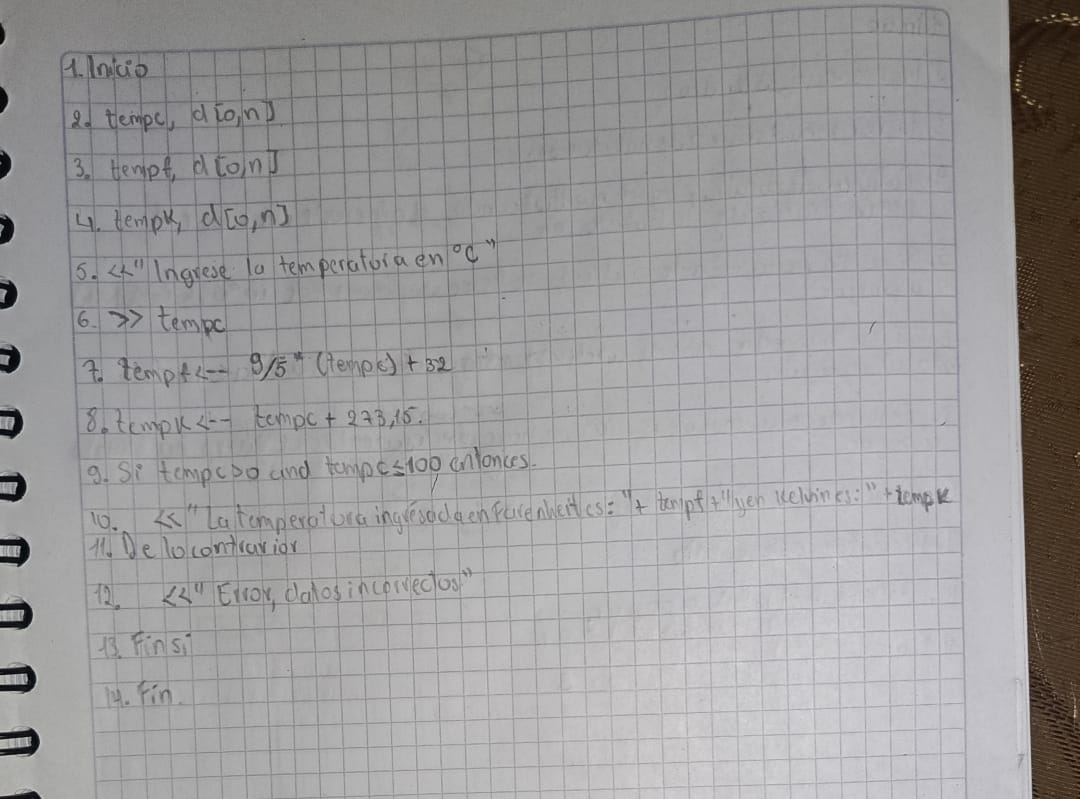 1. Inicio
2. tempc, d[0,n]
3. tempf, d[0,n]
4. tempk, d[0,n]
5. << "Ingrese la temperatura en °C"
6. >> tempc
7. tempf <-- 9/5 * (tempc) + 32
8. tempk <-- tempc + 273,15.
9. Si tempc>0 and tempc≤100 entonces.
10. << "La temperatura ingresada en Farenheit es: "+ tempf + "y en kelvin es: " + tempk
11. De lo contrarior
12. << "Error, datos incorrectos"
13. Fin si
14. Fin.